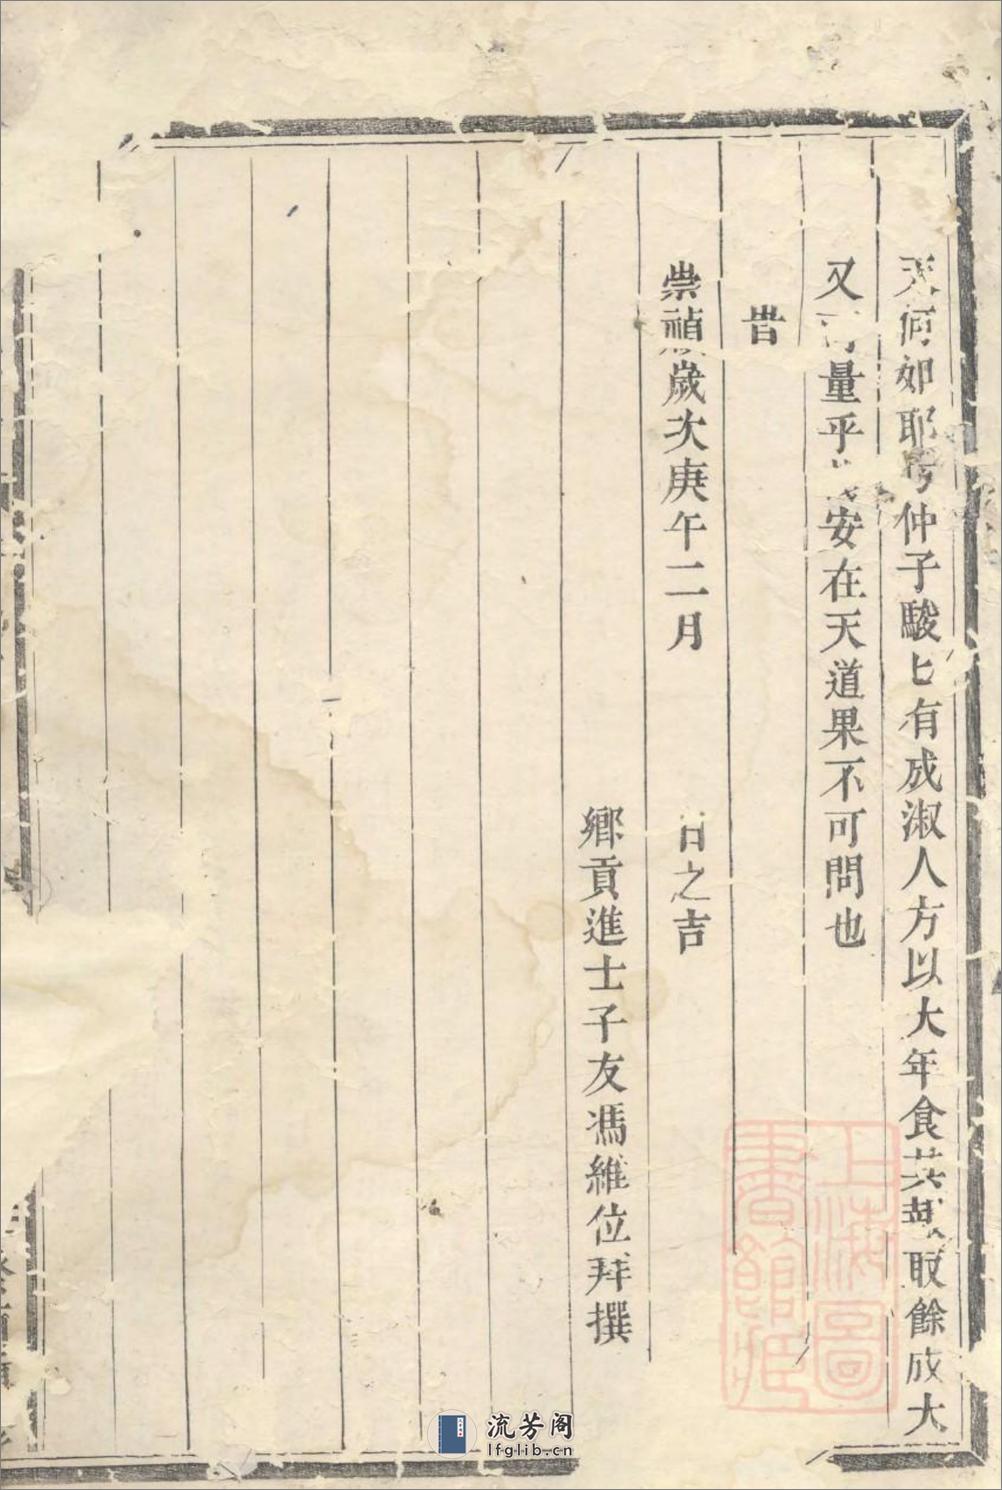 天何如耶 仲子駿 有成淑人方以大年食其 取餘成大
又可量乎 安在天道果不可問也
昔
崇禎歲次庚午二月 日之吉
鄉貢進士子友馮維位拜撰
上海圖
書館藏
流芳阁
lfglib.cn